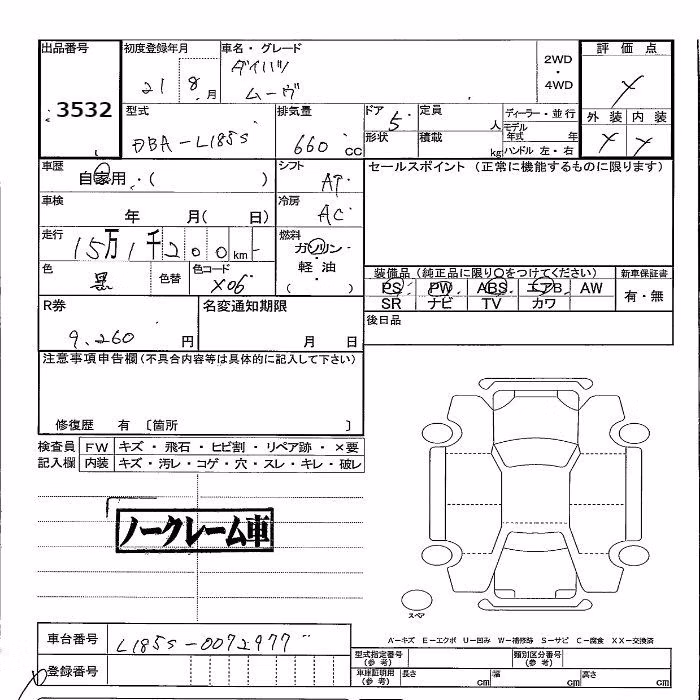 出品番号 3532
初度登録年月 21 8月
車名・グレード ダイハツ ムーヴ
2WD・4WD
評価点
外装 内装
型式 DBA-L185S
排気量 660 cc
ドア 5 形状
定員 人
積載 kg
ディーラー・並行
モデル年式 年
ハンドル 左・右
車歴 自家用・( )
シフト AT
セールスポイント (正常に機能するものに限ります)
車検 年 月( 日)
冷房 AC
走行 15万1千200km
燃料 ガソリン・軽油 ( )
色 黒 色替 色コード X06
装備品 (純正品に限り○をつけてください)
PS PW ABS エアB AW
SR ナビ TV カワ
新車保証書 有・無
R券 9,260円
名変通知期限 月 日
後日品
注意事項申告欄(不具合内容等は具体的に記入して下さい)
修復歴 有 〔箇所 〕
検査員記入欄
FW キズ・飛石・ヒビ割・リペア跡・×要
内装 キズ・汚レ・コゲ・穴・スレ・キレ・破レ
ノークレーム車
スペア
A-キズ E-エクボ U-凹み W-補修跡 S-サビ C-腐食 XX-交換済
車台番号 L185S-0072977
登録番号
型式指定番号(参考)
類別区分番号(参考)
車庫証明用(参考) 長さ cm 幅 cm 高さ cm